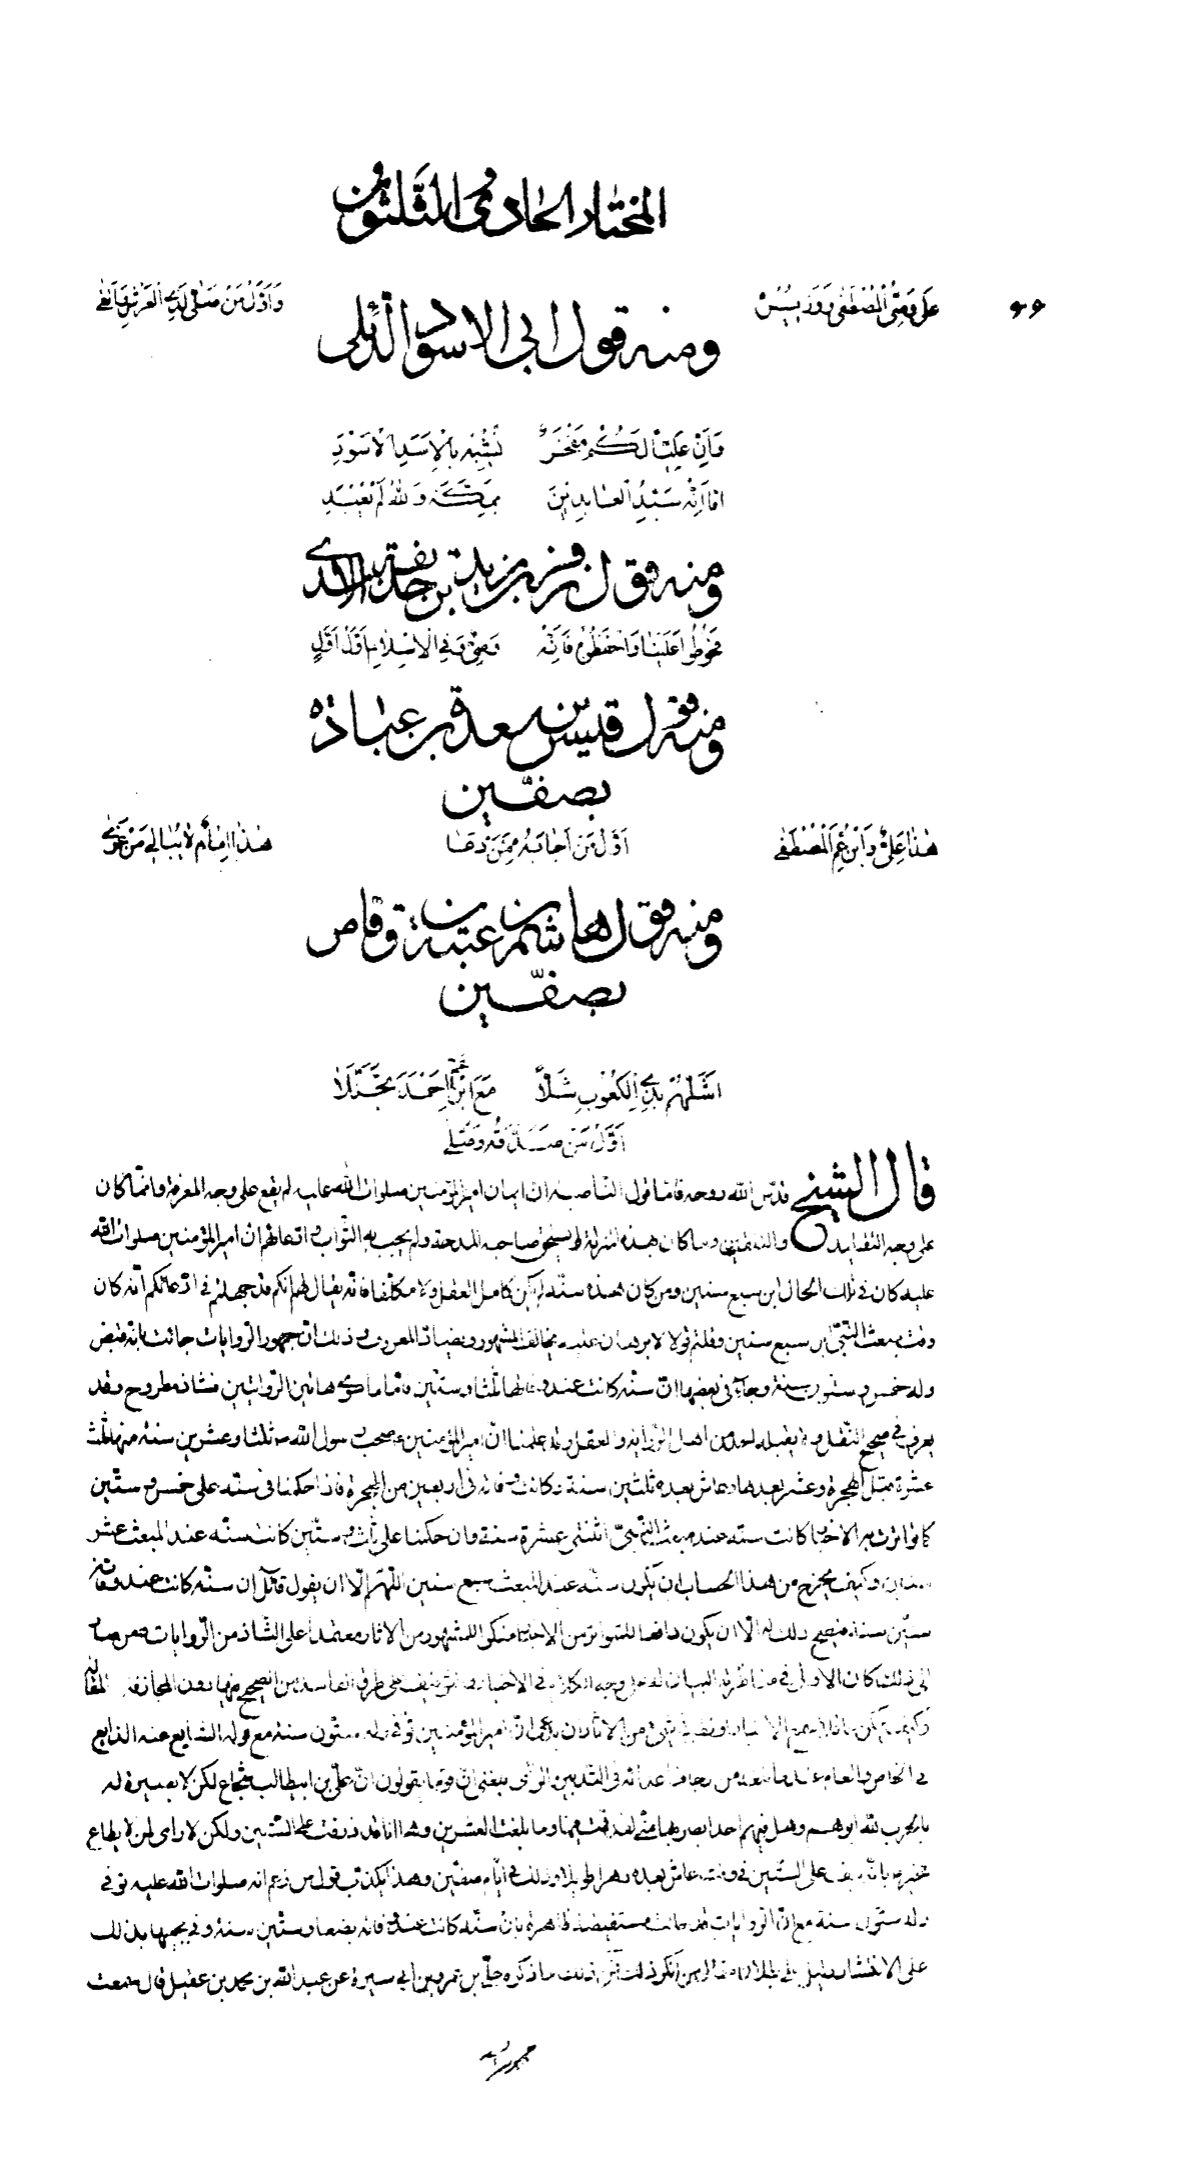 المختار الحادي والثلثون
۶۶
علي وصي المصطفى ووزيره
واول من صلى لذي العرش واتقى
ومنه قول ابي الاسود الدئلي
وان عليا لكم مفخر يشبه بالاسد الاسود
اما انه سيد العابدين بمكة والله لم يعبد
ومنه قول زفر بن زيد بن حذيفة الاسدي
فحوطوا عليا واحفظوه فانه وصي وفي الاسلام اول اول
ومنه قول قيس بن سعد بن عباده
بصفين
هذا علي وابن عم المصطفى
اول من اجابه ممن دعا
هذا امام لا يبالي من غوى
ومنه قول هاشم بن عتبة بن وقاص
بصفين
اشلهم بذي الكعوب شلا مع ابن عم احمد
اول من صدقه وصلى
قال الشيخ قدس الله روحه فاما قول الناصبة ان ايمان امير المؤمنين صلوات الله عليه لم يقع على وجه المعرفة وانما كان
على وجه التقليد والتلقين وما كان بهذه المنزلة لم يستحق صاحبه المدحة ولم يجب به الثواب وادعائهم ان امير المؤمنين صلوات الله
عليه كان في تلك الحال ابن سبع سنين ومن كان هذه سنه لم يكن كامل العقل ولا مكلفا فانه يقال لهم انكم قد جهلتم في ادعائكم انه كان
وقت مبعث النبي ابن سبع سنين وقلتم قولا لا برهان عليه يخالف المشهور ويضاد المعروف وذلك ان جمهور الروايات جائت بانه قبض
وله خمس وستون سنة وجاء في بعضها ان سنه كانت عند وفاته ثلثا وستين فاما ما سوى هاتين الروايتين فشاذ مطروح وقد
يعرف في صحيح النقل ولا يقبله احد من اهل الرواية والعقل وقد علمنا ان امير المؤمنين صحب رسول الله ثلثا وعشرين سنة منها ثلث
عشرة قبل الهجرة وعشر بعدها وعاش بعده ثلثين سنة وكانت وفاته في اربعين من الهجرة فاذا حكمنا في سنه على خمس وستين
كما تواترت به الاخبار كانت سنه عند مبعث النبي اثنتي عشرة سنة وان حكمنا على ثلث وستين كانت سنه عند المبعث عشر
سنين وكيف يخرج من هذا الحساب ان يكون سنه عند المبعث سبع سنين اللهم الا ان يقول قائل ان سنه كانت عند وفاته
ستين سنة فيصح ذلك له الا ان يكون دافعا للمتواتر من الاخبار منكرا للمشهور من الاثار معتمدا على الشاذ من الروايات ومن صار
الى ذلك كان الاولى في مناظرته البيان له على وجه الكلام في الاخبار والتوقيف على طرق الفاسد من الصحيح فيها دون المجازفة في المقالة
وكيف يمكن عاقلا سمع الاخبار او نظر في شيء من الاثار ان يدعي ان امير المؤمنين توفي وله ستون سنة مع قوله الشايع عنه الذايع
في الخاص والعام عند ما بلغه من ارجاف اعدائه في التدبير والرأي بلغني ان قوما يقولون ان علي بن ابيطالب شجاع لكن لا بصيرة له
بالحرب لله ابوهم وهل فيهم احد ابصر بها مني لقد قمت فيها وما بلغت العشرين وها انا قد ذرفت على الستين ولكن لا راي لمن لا يطاع
فخبر بانه نيف على الستين في وقت عاش بعده دهرا طويلا وذلك في ايام صفين وهذا يكذب قول من زعم انه صلوات الله عليه توفي
وله ستون سنة مع ان الروايات قد جائت مستفيضة ظاهرة بان سنه كانت عند وفاته بضعا وستين سنة وفي مجيئها بذلك
على الانتشار دليل على بطلان مقال من انكر ذلك فمن ذلك ما ذكره علي بن عمرو بن ابي سبرة عن عبد الله بن محمد بن عقيل قال سمعت